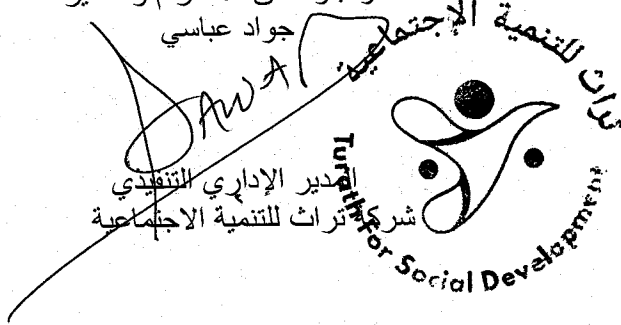 جواد عباسي
JAWAD
المدير الإداري التنفيذي
شركة تراث للتنمية الاجتماعية
تراث للتنمية الإجتماعية
Turath for Social Development